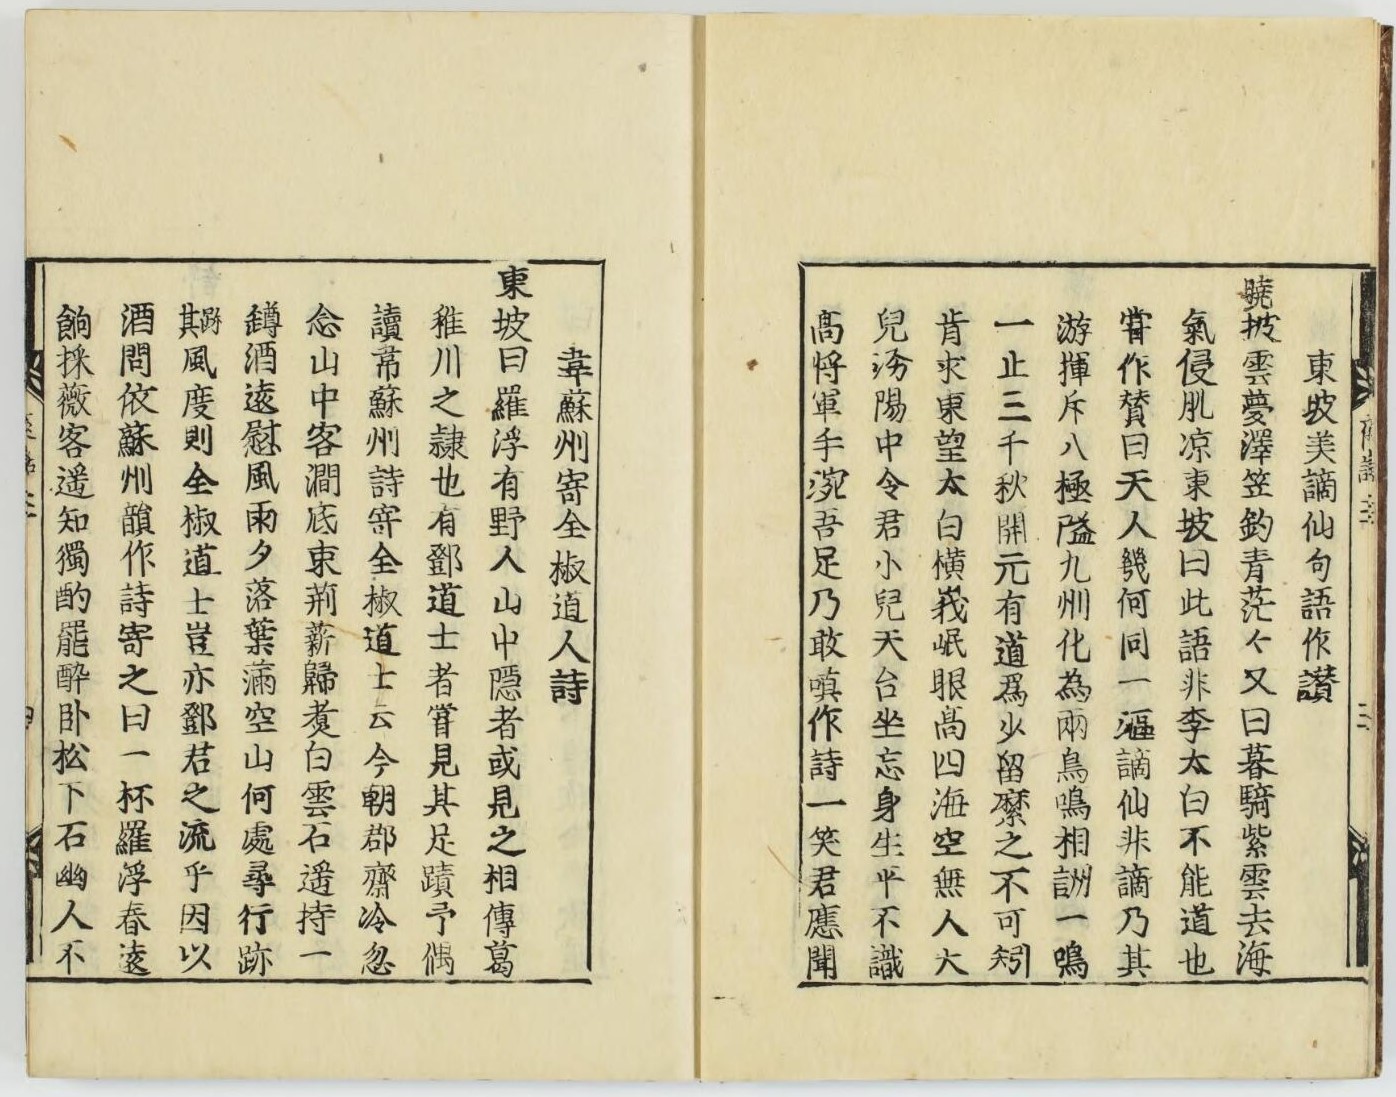 東坡美謫仙句語作讃
曉披雲夢澤笠釣青茫々又曰暮騎紫雲去海
氣侵肌凉東坡曰此語非李太白不能道也
甞作賛曰天人幾何同一漚謫仙非謫乃其
游揮斥八極隘九州化為兩鳥鳴相詶一鳴
一止三千秋開元有道爲少留縻之不可矧
肯求東望太白横峩岷眼高四海空無人大
兒汾陽中令君小兒天台坐忘身生平不識
高将軍手涴吾足乃敢嗔作詩一笑君應聞
韋蘇州寄全椒道人詩
東坡曰羅浮有野人山中隱者或見之相傳葛
稚川之隷也有鄧道士者甞見其足蹟予偶
讀韋蘇州詩寄全椒道士云今朝郡齋冷忽
念山中客澗底束荊薪歸煑白雲石遥持一
罇酒遠慰風雨夕落葉滿空山何處尋行跡
其風度則全椒道士豈亦鄧君之流乎因以
酒問依蘇州韻作詩寄之曰一杯羅浮春遠
餉採薇客遥知獨酌罷醉卧松下石幽人不